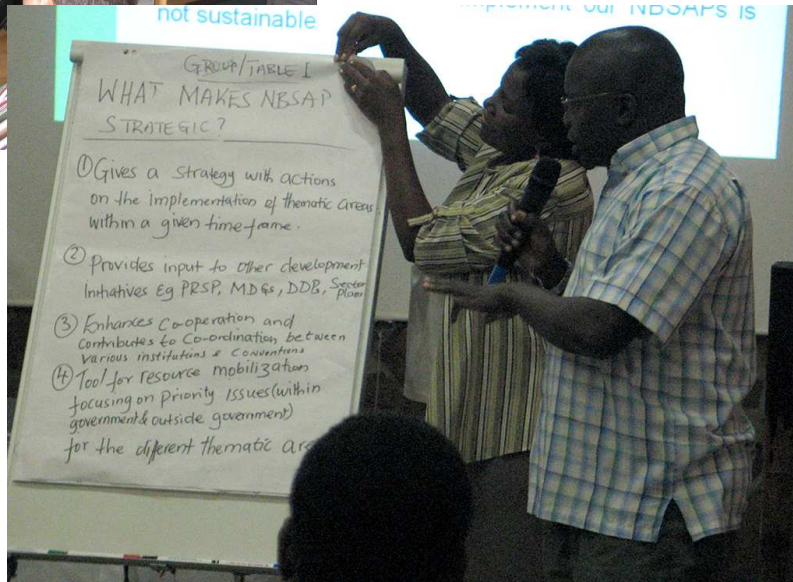 not sustainable
implement our NBSAPs is
GROUP/TABLE I
WHAT MAKES NBSAP
STRATEGIC?
① Gives a strategy with actions
on the implementation of thematic areas
within a given time-frame.
② Provides input to other development
Initiatives Eg PRSP, MDGs, DDP, Sector
plans
③ Enhances Co-operation and
contributes to Co-ordination between
various institutions & Conventions
④ Tool for resource mobilization
focusing on Priority Issues (within
government & outside government)
for the different thematic